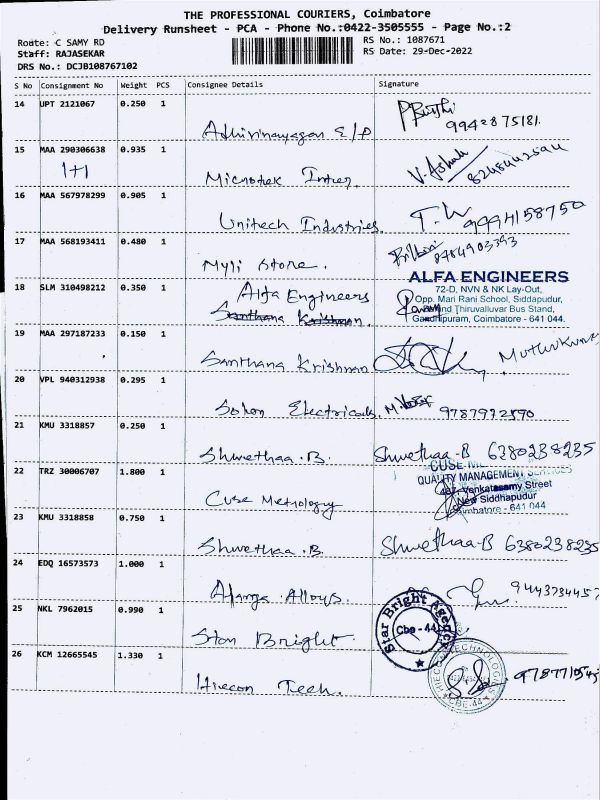 THE PROFESSIONAL COURIERS, Coimbatore
Delivery Runsheet - PCA - Phone No.:0422-3505555 - Page No.:2
Route: C SAMY RD
Staff: RAJASEKAR
DRS No.: DCJB108767102
RS No.: 1087671
RS Date: 29-Dec-2022
S No Consignment No Weight PCS Consignee Details Signature
14 UPT 2121067 0.250 1
99428 75181.
15 MAA 290306638 0.935 1
1+1 V. Ashok
16 MAA 567978299 0.905 1
Unitech Industries. 9994158750
17 MAA 568193411 0.480 1
Myli Store. 8784903393
18 SLM 310498212 0.350 1
Alfa Engineers
Santhana Krishnan.
ALFA ENGINEERS
72-D, NVN & NK Lay-Out,
Opp. Mari Rani School, Siddapudur,
Thiruvalluvar Bus Stand,
Gandhipuram, Coimbatore - 641 044.
19 MAA 297187233 0.150 1
Santhana Krishnan
20 VPL 940312938 0.295 1
Electricals. 9787972590
21 KMU 3318857 0.250 1
Shwethaa.B. Shwethaa-B 6380238235
22 TRZ 30006707 1.800 1
Cuse Metrology
CUSE
QUALITY MANAGEMENT SERVICES
Venkatasamy Street
New Siddhapudur
Coimbatore - 641 044
23 KMU 3318858 0.750 1
Shwethaa.B Shwethaa-B 6380238235
24 EDQ 16573573 1.000 1
Alloys 9443734457
25 NKL 7962015 0.990 1
Star Bright
Star Bright Agency
Cbe - 44
26 KCM 12665545 1.330 1
Hrecon Tech.
HRECON TECHNOLOGIES
CBE-44